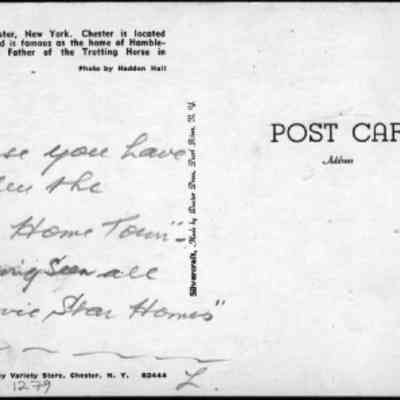 ster, New York. Chester is located
d is famous as the home of Hamble-
Father of the Trotting Horse in
Photo by Haddon Hall
se you have
the
Home Town"-
Seen all
vie Star Homes"
L.
y Variety Store, Chester, N. Y. 82444
1279
Silvercraft, Made by Dexter Press, Pearl River, N. Y.
POST CAR
Address